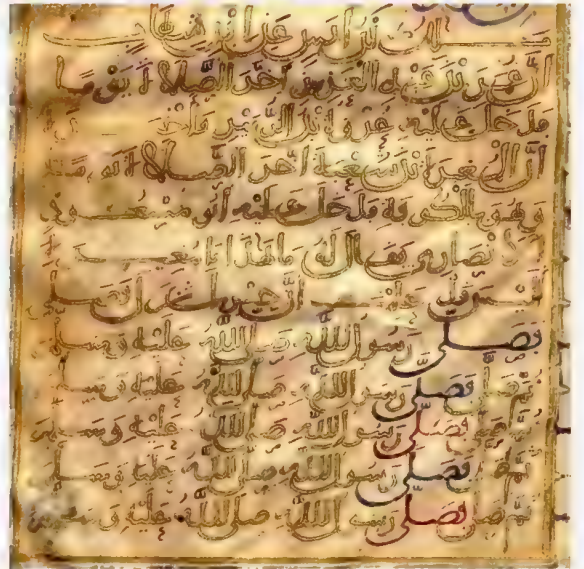 مـلك بن انس عن ابن شهاب
أن عمر بن عبد العزيز أخر الصلاة يوما
فدخل عليه عروة ابن الزبير فأخبر
أن المغيرة ابن شعبة أخر الصلاة يوما
وهو بالكوفة فدخل عليه أبو مسعود
الانصاري فقال ما هذا يا مغير
أليس قد علمت أن جبريل نزل فصلى
فصلى رسول الله صلى الله عليه وسلم
ثم صلى فصلى رسول الله صلى الله عليه وسلم
ثم صلى فصلى رسول الله صلى الله عليه وسلم
ثم صلى فصلى رسول الله صلى الله عليه وسلم
ثم صلى فصلى رسول الله صلى الله عليه وسلم